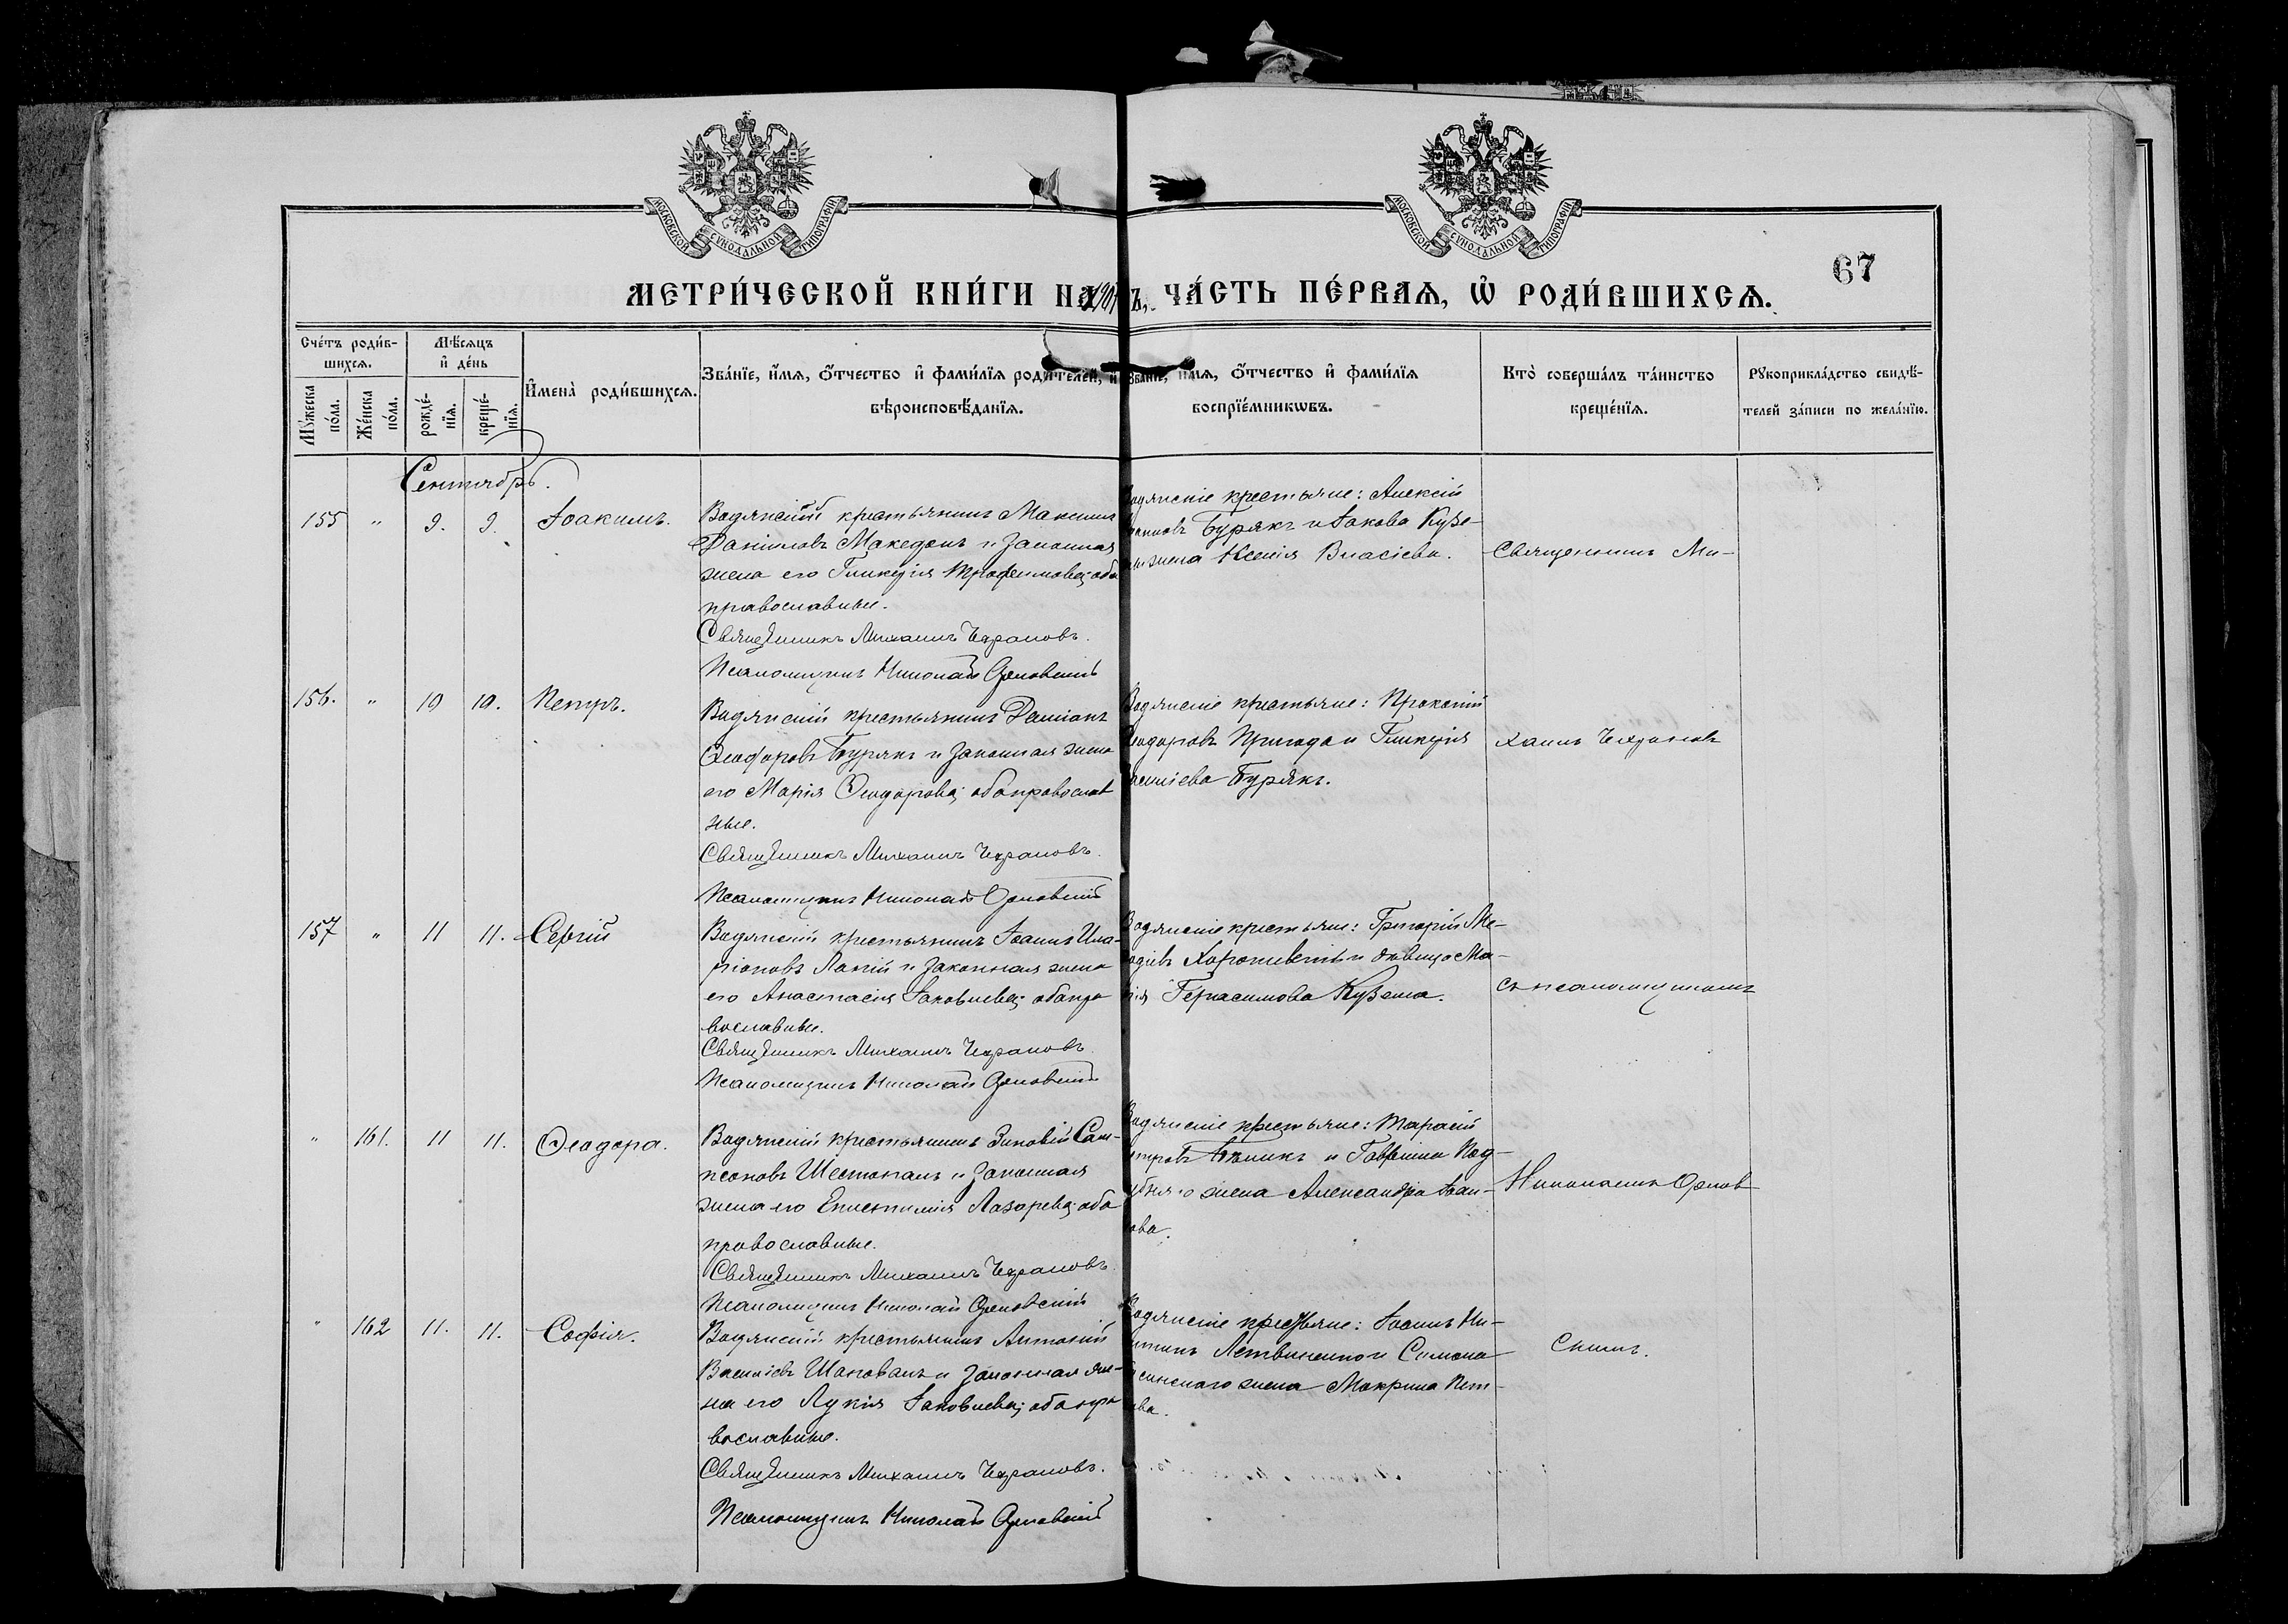 МОСКОВСКОЙ СУНОДАЛЬНОЙ ТИПОГРАФИИ
МОСКОВСКОЙ СУНОДАЛЬНОЙ ТИПОГРАФИИ
67
МЕТРИ́ЧЕСКОЙ КНИ́ГИ НА
ЧА́СТЬ ПЕ́РВАѦ, Ѡ҆ РОДИ́ВШИХСѦ.
Сче́тъ роди́в-
шихсѧ.
Мѣ́сѧцъ
и҆ де́нь
Мꙋ́жеска по́ла.
Же́нска по́ла.
рожде́-
нїѧ.
креще́-
нїѧ.
И҆мена̀ роди́вшихсѧ.
Зва́нїе, и҆́мѧ, ѻ҆́тчество и҆ фами́лїѧ роди́телей, и҆
вѣроисповѣ́данїѧ.
Зва́нїе, и҆́мѧ, ѻ҆́тчество и҆ фами́лїѧ
воспрїе́мникѡвъ.
Кто̀ соверша́лъ та́инство
креще́нїѧ.
Рꙋкоприкла́дство свидѣ́-
телей за́писи по жела́нїю.
Сентябрь.
155 " 9. 9. Іоакимъ.
Водянскій крестьянинъ Максимъ
Даніиловъ Македонъ и законная
жена его Гликерія Трофимова; оба
православные.
Священникъ Михаилъ Чехрановъ.
Псаломщикъ Николай Орловскій
Водянскіе крестьяне: Алексій
Бурякъ и Іакова Кузе-
жена Ксенія Власіева.
Священникъ Ми-
156. " 10 10. Петръ.
Водянскій крестьянинъ Даміанъ
Ѳеодоровъ Бурякъ и законная жена
его Марія Ѳеодорова; оба православ
ные.
Священникъ Михаилъ Чехрановъ.
Псаломщикъ Николай Орловскій
Водянскіе крестьяне: Прокопій
Ѳеодоровъ Пригода и Гликерія
Василіева Бурякъ.
хаилъ Чехрановъ
157 " 11 11. Сергій
Водянскій крестьянинъ Іоаннъ Ила-
ріоновъ Лапій и законная жена
его Анастасія Іаковлева; оба пра
вославные.
Священникъ Михаилъ Чехрановъ
Псаломщикъ Николай Орловскій
Водянскіе крестьяне: Григорій Ме-
и дѣвица Ма-
рія Герасимова Кузема.
съ псаломщикомъ
" 161. 11 11. Ѳеодора.
Водянскій крестьянинъ Зиновій Сам-
псоновъ Шестопалъ и законная
жена его Епистимія Лазарева; оба
православные.
Священникъ Михаилъ Чехрановъ.
Псаломщикъ Николай Орловскій
Водянскіе крестьяне: Тарасій
и Гавріила Под-
жена Александра Іоан-
нова.
Николаемъ Орлов-
" 162 11. 11. Софія.
Водянскій крестьянинъ Антоній
Василіевъ Шаповалъ и законная же-
на его Лукія Іаковлева; оба пра
вославные.
Священникъ Михаилъ Чехрановъ.
Псаломщикъ Николай Орловскій
Водянскіе крестьяне: Іоаннъ Ни-
китинъ Летвиненко и Симона
жена Макрина Пет-
рова.
скимъ.